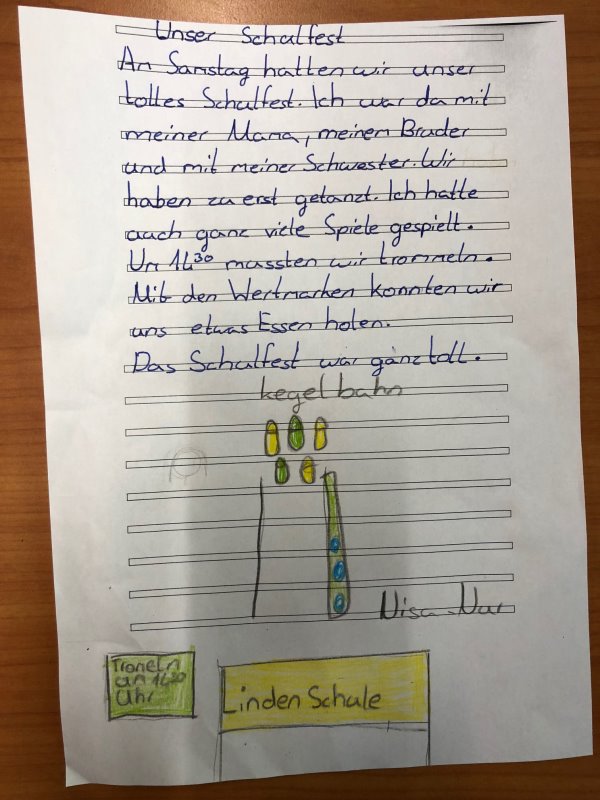 Unser Schulfest
Am Samstag hatten wir unser
tolles Schulfest. Ich war da mit
meiner Mama, meinem Bruder
und mit meiner Schwester. Wir
haben zu erst getanzt. Ich hatte
auch ganz viele Spiele gespielt.
Um 14³⁰ mussten wir trommeln.
Mit den Wertmarken konnten wir
uns etwas Essen holen.
Das Schulfest war ganz toll.
kegelbahn
Nisa-Nur
Tromeln
um 14³⁰
Uhr
Linden Schule